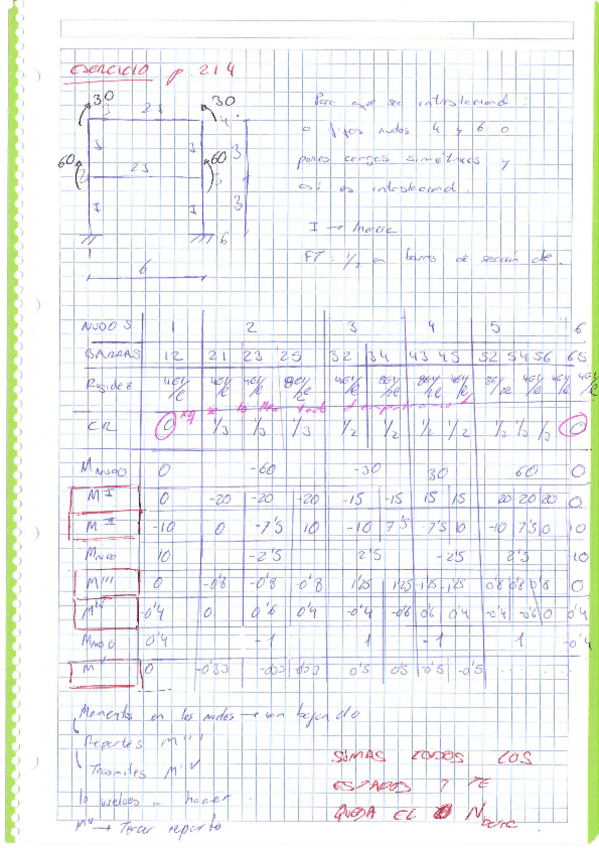 EJERCICIO p. 214
30 30
3 2I 4
60 I I 60 3
2 2I 5
I I 3
1 6
6
Para que sea intraslacional:
o fijas nudos 4 y 6 o
pones cargas simétricas y
así es intraslacional.
I → Inercia
FT: 1/2 en barras de sección cte.
NUDOS 1 2 3 4 5 6
BARRAS 12 21 23 25 32 34 43 45 52 54 56 65
Rigidez 4EI/l 4EI/l 4EI/l 8EI/l 4EI/l 8EI/l 4EI/l 4EI/l 4EI/l
CR 0 1/3 1/3 1/3 1/2 1/2 1/2 1/2 1/3 1/3 1/3 0
M NUDO 0 -60 -30 30 60 0
M I 0 -20 -20 -20 -15 -15 15 15 20 20 20 0
M II -10 0 -7'5 10 -10 7'5 -7'5 10 -10 7'5 0 10
M NUDO 10 -2'5 2'5 -2'5 2'5 -10
M''' 0 -0'8 -0'8 -0'8 1'25 1'25 -1'25 -1'25 0'8 0'8 0'8 0
M IV -0'4 0 0'6 0'4 -0'4 -0'6 0'6 0'4 -0'4 -0'6 0 0'4
M NUDO 0'4 -1 1 -1 1 -0'4
M V 0 -0'33 -0'33 -0'33 0'5 0'5 -0'5 -0'5
Momentos en los nudos → van bajando
Repartes M'''
Trasmites M IV
lo vuelves a hacer.
M V → Tercer reparto
SUMAS TODOS LOS
ESTADOS Y TE
QUEDA EL M barra.